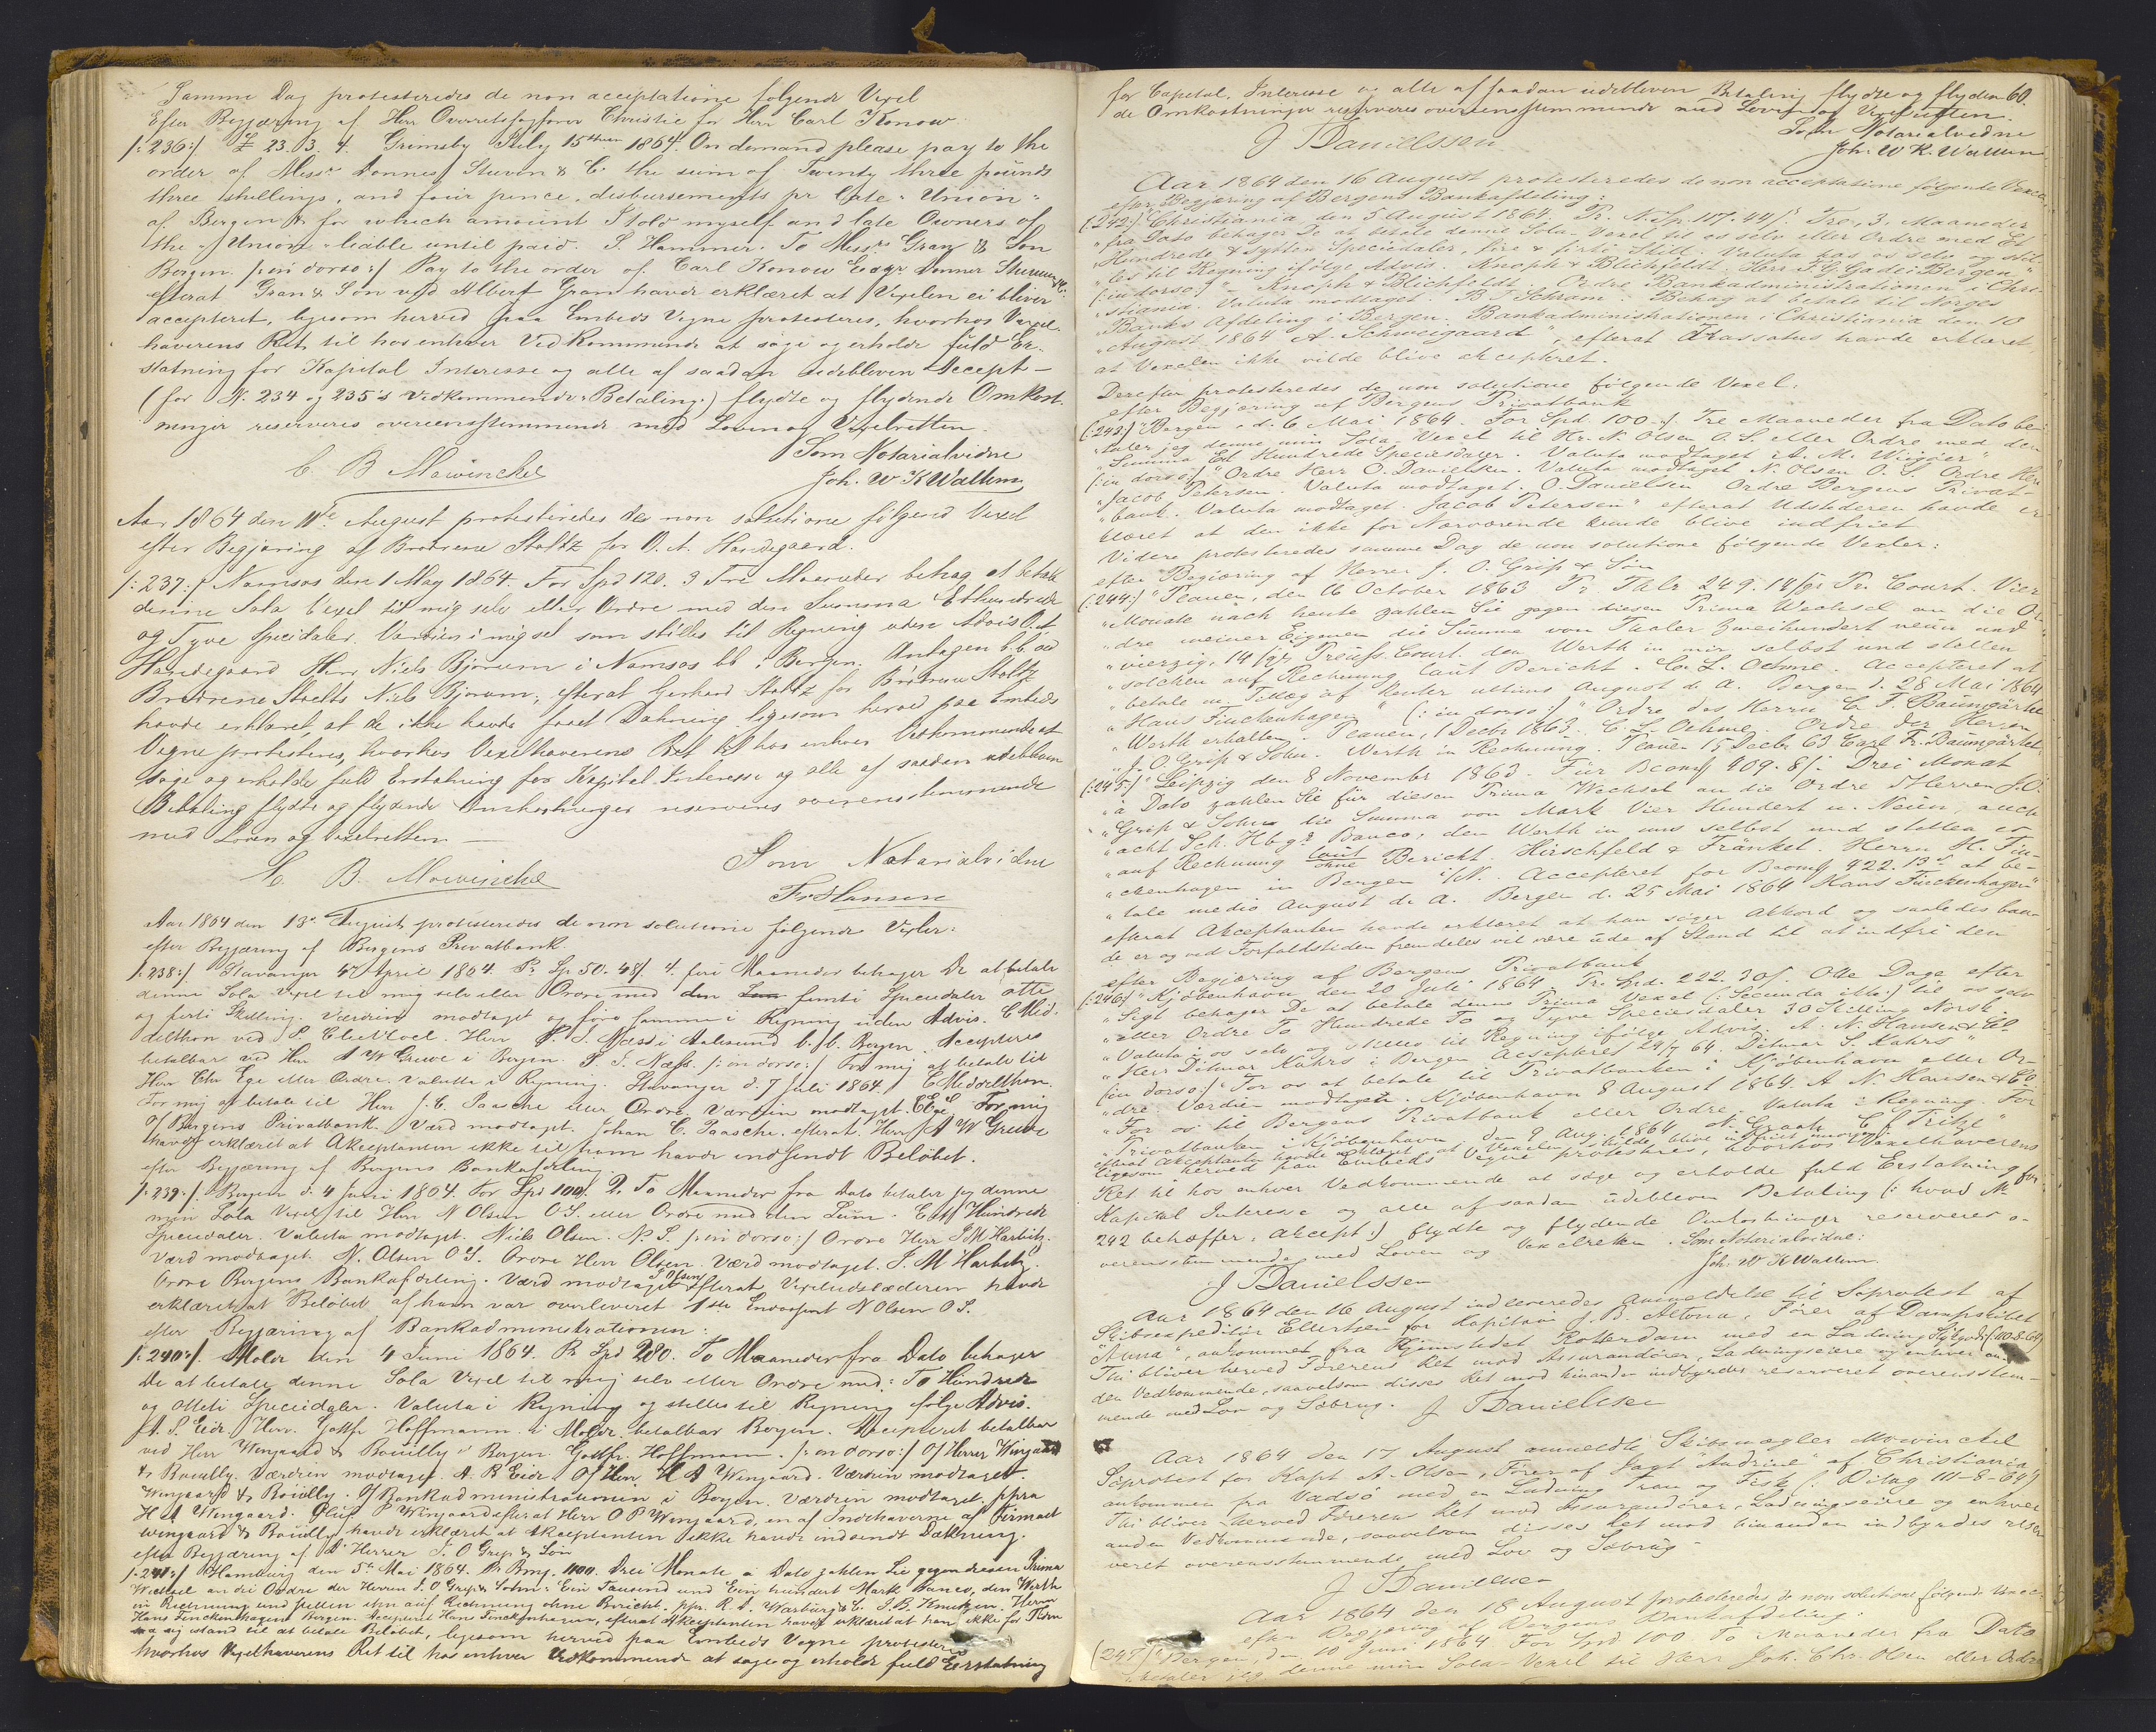 Samme Dag protesteredes de non acceptatione følgende Vexel
Efter Begjæring af Herr Overretssagfører Christie for Herr Carl Konow
/:236:/ £ 23. 3. 4. Grimsby July 15th 1864. On demand please pay to the
order of Messrs Stuven & C. the sum of Twenty three pounds
three shillings, and four pence, disbursements pr late "Union"
of Bergen & for which amount I hold myself and late Owners of
the "Union" liable until paid. S. Hammer. To Messrs Gran & Son
Bergen. /:in dorso:/ Pay to the order of Carl Konow Esqr
efterat Gran & Søn ved Albert Gran havde erklæret at Vexelen ei bliver
accepteret, ligesom herved paa Embeds Vegne protesteres, hvorhos Vexel-
haverens Ret til hos enhver Vedkommende at søge og erholde fuld Er-
statning for Kapital Interesse og alle af saadan udebleven Accept -
(for N. 234 og 235's Vedkommende: Betaling:) flydte og flydende Omkost-
ninger reserveres overeensstemmende med Loven og Vexelretten.
Som Notarialvidne
C. B. Mowinckel Joh. W K Wallem
Aar 1864 den 11te August protesteredes de non solutione følgende Vexel
efter Begjæring af Brødrene Stoltz for O. A. Hardegaard.
/:237:/ Namsos den 1 May 1864. For Spd 120. 3 Tre Maaneder behag at betale
denne Sola Vexel til mig selv eller Ordre med den Summa Ethundrede
og Tyve Speciedaler. Værdien i mig selv som stilles til Regning uden Advis O. A
Hardegaard Herr Niels Bjørum i Namsos bb i Bergen. Antagen b.b. ved
Brødrene Stoltz Niels Bjørum, efterat Gerhard Stoltz for Brødrene Stoltz
havde erklæret, at de ikke havde faaet Dækning ligesom herved paa Embeds
Vegne protesteres, hvorhos Vexelhaverens Ret til hos enhver Vedkommende at
søge og erholde fuld Erstatning for Kapital Interesse og alle af saadan udebleven
Betaling flydte og flydende Omkostninger reserveres overeensstemmende
med Loven og Vexelretten.
Som Notarialvidne
C. B. Mowinckel Fr. Hansen
Aar 1864 den 13de August protesteredes de non solutione følgende Vexler:
efter Begjæring af Bergens Privatbank.
/:238:/ Stavanger April 1864. Pr Sp. 50. 48/. 4. fire Maaneder behager De at betale
denne Sola Vexel til mig selv eller Ordre med den femti Speciedaler otte
og førti Skilling. Værdien modtaget og føre samme i Regning uden Advis. C Mid-
delthon ved Herr P. S. Næss i Aalesund b./b. Bergen. Accepteres
betalbar ved Herr A W Greve i Bergen. P. S. Næss. /:in dorso:/ For mig at betale til
Herr Ege eller Ordre. Valuta i Regning. Stavanger d. 7 Juli 1864. C Middelthon.
For mig at betale til Herr J. C. Paasche eller Ordre. Værdien modtaget. C Ege. For mig
til Bergens Privatbank. Værd. modtaget. Johan C. Paasche. efterat Herr A W Greve
havde erklæret at Akceptanten ikke til ham havde indsendt Beløbet.
efter Begjæring af Bergens Bankafdeling
/:239:/ Bergen d. 4 Juni 1864. For Spd 100/. 2. To Maaneder fra Dato betaler jeg denne
min Sola Vexel til Herr N Olsen O S. eller Ordre med den Sum Et Hundrede
Speciedaler. Valuta modtaget. Niels Olsen. N. S. /:in dorso:/ Ordre Herr J M Harbitz.
Værd modtaget. N. Olsen O S. Ordre Herr Olsen. Værd modtaget. J. M Harbitz.
Ordre Bergens Bankafdeling. Værd modtaget J Olsen efterat Vexeludstederen havde
erklæret at Beløbet af ham var overleveret 1ste Endossent N Olsen O S.
efter Begjæring af Bankadministrationen:
/:240:/. Molde den 4 Juni 1864. Pr Spd 280. To Maaneder fra Dato behager
De at betale denne Sola Vexel til mig selv eller Ordre med: To Hundrede
og Otteti Speciedaler. Valuta i Regning og stilles til Regning ifølge Advis.
A. P. Eide. Herr Gottfr Hoffmann i Molde, betalbar Bergen. Accepteret betalbar
ved Herr Wingaard & Bouilly i Bergen. Gottfr. Hoffmann. /:in dorso:/ Herrer Wingaard
& Bouilly. Værdien modtaget. A. P. Eide. Herr H A Wingaard. Værdien modtaget.
Wingaard & Bouilly. Bankadministrationen i Bergen. Værdien modtaget. ppra
H A Wingaard. Oluf P Wingaard efterat Herr O P Wingaard, en af Indehaverne af Firmaet
Wingaard & Bouilly havde erklæret at Akceptanten ikke havde indsendt Dækning.
efter Begjæring af Herrer J. O Grip & Søn
/:241:/ Hamburg den 5te Mai 1864. Pr Bmg. 1100. Drei Monate a Dato zahlen Sie gegen diesen Prima
Wechsel an die Ordre der Herren J. O Grip & Sohn: Ein Tausend und Ein hundert Mark Banco, den Werth
in Rechnung und stellen ihn auf Rechnung ohne Bericht. ppr. R. A. Warburg & C. J. B. Knutzen. Herrn
Hans Finckenhagen Bergen. Accepteret Hans Finckenhagen, efterat Akceptanten havde erklæret at han ikke for Tiden
saa sig istand til at betale Beløbet, ligesom herved paa Embeds Vegne protesteres
hvorhos Vexelhaverens Ret til hos enhver Vedkommende at søge og erholde fuld Erstatning
for Capital, Interesse og alle af saadan udebleven Betaling flydte og flyden 60.
de Omkostninger reserveres overeensstemmende med Loven og Vexelretten.
Som Notarialvidne
J Danielssen Joh. W K. Wallem
Aar 1864 den 16 August protesteredes de non acceptatione følgende Vexel
efter Begjæring af Bergens Bankafdeling:
(:242:) "Christiania den 5 August 1864. Pr. N. Sp. 117. 44/s. Tre, 3, Maaneder
"fra Dato behager De at betale denne Sola-Vexel til os selv eller Ordre med Et
"Hundrede & sytten Speciedaler, fire & firti Skill. Valuta hos os selv og stil-
"les til Regning ifølge Advis. Knoph & Blichfeldt. Herr F. G. Gade i Bergen"
(:in dorso:) "Knoph & Blichfeldt. Ordre Bankadministrationen i Chri-
"stiania. Valuta modtaget. B Schram. Behag at betale til Norges
"Banks Afdeling i Bergen. Bankadministrationen i Christiania den 10
"August 1864 A. Schweigaard", efterat Trassatus havde erklæret
at Vexelen ikke vilde blive akcepteret.
Derefter protesteredes de non solutione følgende Vexel:
efter Begjæring af Bergens Privatbank
(:243:) "Bergen, d. 6 Mai 1864. For Spd. 100./. Tre Maaneder fra Dato be-
"taler jeg denne min Sola-Vexel til Hr. N. Olsen O. S. eller Ordre med den
"Summa Et Hundrede Speciesdaler. Valuta modtaget A. M. Wingaer"
(:in dorso:) "Ordre Herr O. Danielsen. Valuta modtaget N. Olsen O. S. Ordre Herr
"Jacob Petersen. Valuta modtaget. O. Danielsen Ordre Bergens Privat-
"bank. Valuta modtaget. Jacob Petersen" efterat Udstederen havde er-
klæret at den ikke for Nærværende kunde blive indfriet
Videre protesteredes samme Dag de non solutione følgende Vexler:
efter Begjæring af Herrer J. O. Grip & Søn
(:244:) "Plauen, den 16 October 1863 Pr. Thlr 249. 14/gr Pr. Court. Vier
"Monate nach heute zahlen Sie gegen diesen Prima Wechsel an die Or-
"dre meiner Eigenen die Summe von Thaler Zweihundert neun und
"vierzig, 14/gr, Preuss. Court. den Werth in mir selbst und stellen
"solchen auf Rechnung laut Bericht. C. L. Oehme. Accepteret at
"betale m. Tillæg af Renter ultimo August d. A. Bergen d. 28 Mai 1864
"Hans Finckenhagen" (:in dorso:) "Ordre des Herrn C F. Baumgärtel
"Werth erhalten. Plauen, 1 Decbr 1863. C. L. Oehme. Ordre der Herren
"J. O. Grip & Sohn. Werth in Rechnung. Plauen 15 Decbr 63 Carl Fr. Baumgärtel
(:245:) "Leipzig den 8 November 1863. Für Bcomk 409. 8/s Drei Monat
"à Dato zahlen Sie für diesen Prima Wechsel an die Ordre Herren J. O.
"Grip & Sohn die Summa von Mark Vier Hundert u. Neun, auch
"acht Sch. Hbgr Banco, den Werth in uns selbst und stellen es
"auf Rechnung laut ohne Bericht. Hirschfeld & Fränkel. Herrn H. Fin-
"ckenhagen in Bergen i/N. Accepteret for Bcomk 422. 13s at be-
"tale medio August d. A. Bergen d. 25 Mai 1864 Hans Finckenhagen"
efterat Akceptanten havde erklæret at han søger Akkord og saaledes baa-
de er og ved Forfaldstiden fremdeles vil være ude af Stand til at indfri den
efter Begjæring af Bergens Privatbank
(:246) "Kjøbenhavn den 20 Juli 1864 Pr. Spd. 222. 30/. Otte Dage efter
"Sigt behager De at betale denne Prima Vexel (:Secunda ikke:) til os selv
"eller Ordre To Hundrede To og Tyve Speciesdaler 30 Skilling Norsk.
"Valuta i os selv og stilles til Regning ifølge Advis. A. N. Hansen & Co
"Herr Ditmar Kahrs i Bergen Accepteret 24/7 64. Ditmar S. Kahrs"
(in dorso:) "For os at betale til Privatbanken i Kjøbenhavn eller Or-
"dre. Værdien modtagen. Kjøbenhavn 8 August 1864. A. N. Hansen & Co.
"For os til Bergens Privatbank eller Ordre. Valuta i Regning. For
"Privatbanken i Kjøbenhavn den 9 Aug. 1864 C F Tritze"
efterat Akceptanten havde erklæret at Vexelen skulde blive indfriet imorgen
ligesom herved paa Embeds Vegne protesteres, hvorhos Vexelhaverens
Ret til hos enhver Vedkommende at søge og erholde fuld Erstatning for
Kapital Interesse og alle af saadan udebleven Betaling (: hvad No
242 betræffer: Akcept:) flydte og flydende Omkostninger reserveres o-
verensstemmende med Loven og Vexelretten. Som Notarialvidne:
J Danielssen Joh. W K Wallem.
Aar 1864 den 16 August indleveredes Anmeldelse til Søprotest af
Skibsexpeditør Ellertsen for Kapitain J. B. Altona, Fører af Dampskibet
"Anna", ankommen fra Hjemstedet Rotterdam med en Ladning Stykgods (:20-8-64)
Thi bliver herved Førerens Ret mod Assurandører, Ladningseiere og enhver an-
den Vedkommende, saavelsom disses Ret mod hinanden indbyrdes reserveret overensstem-
mende med Lov og Søbrug. J Danielssen
Aar 1864 den 17 August anmeldte Skibsmægler Mowinckel
Søprotest for Kapt A. Olsen, Fører af Jagt "Andrine" af Christiania
ankommen fra Vadsø med en Ladning Tran og Fisk
Thi bliver herved Førerens Ret mod Assurandører, Ladningseiere og enhver
anden Vedkommende, saavelsom disses Ret mod hinanden indbyrdes reser-
veret overensstemmende med Lov og Søbrug -
J Danielssen
Aar 1864 den 18 August protesteredes de non solutione følgende Vexel:
efter Begjæring af Bergens Bankafdeling.
(247) "Bergen, den 10 Juni 1864 For Spd 100 To Maaneder fra Dato
"betaler jeg denne min Sola-Vexel til Herr Joh. Chr. Olsen eller Ordre